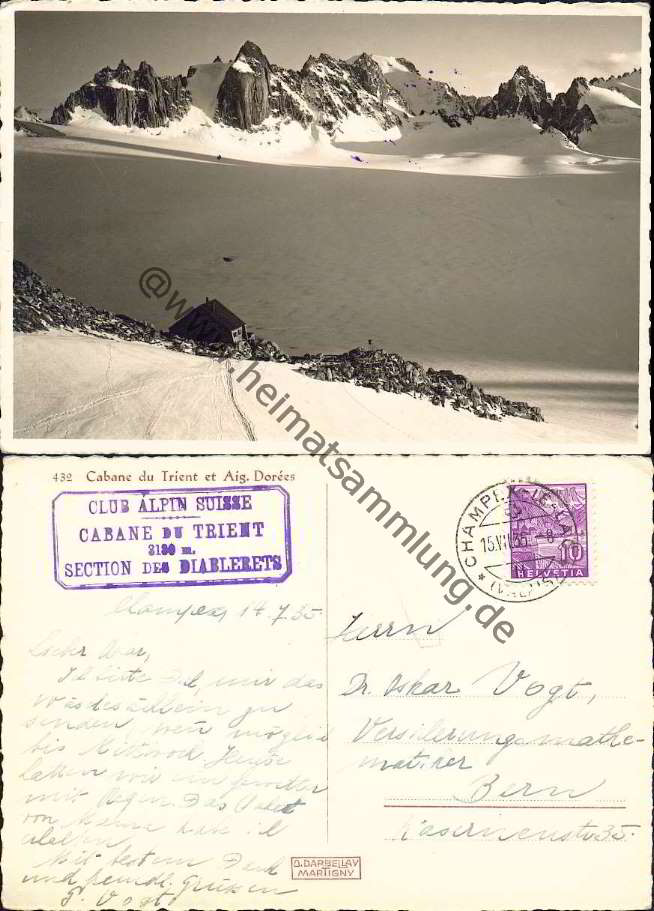 @www.heimatsammlung.de
432 Cabane du Trient et Aig. Dorées
CLUB ALPIN SUISSE
CABANE DU TRIENT
3190 m.
SECTION DES DIABLERETS
CHAMPEX
15.VII.35.-8
(VALAIS)
10
HELVETIA
Champex, 14.7.35
Herrn
Dr. Oskar Vogt,
Versicherungsmathe-
matiker
Bern
Kasernenstr. 35.
Ich bitte Dich, mir das
senden, wenn möglich
bis Mittwoch. Heute
hatten wir ein Gewitter
mit Regen. Das Paket
von
Mit bestem Dank
und freundl. Grüssen
P. Vogt
O. DARBELLAY
MARTIGNY